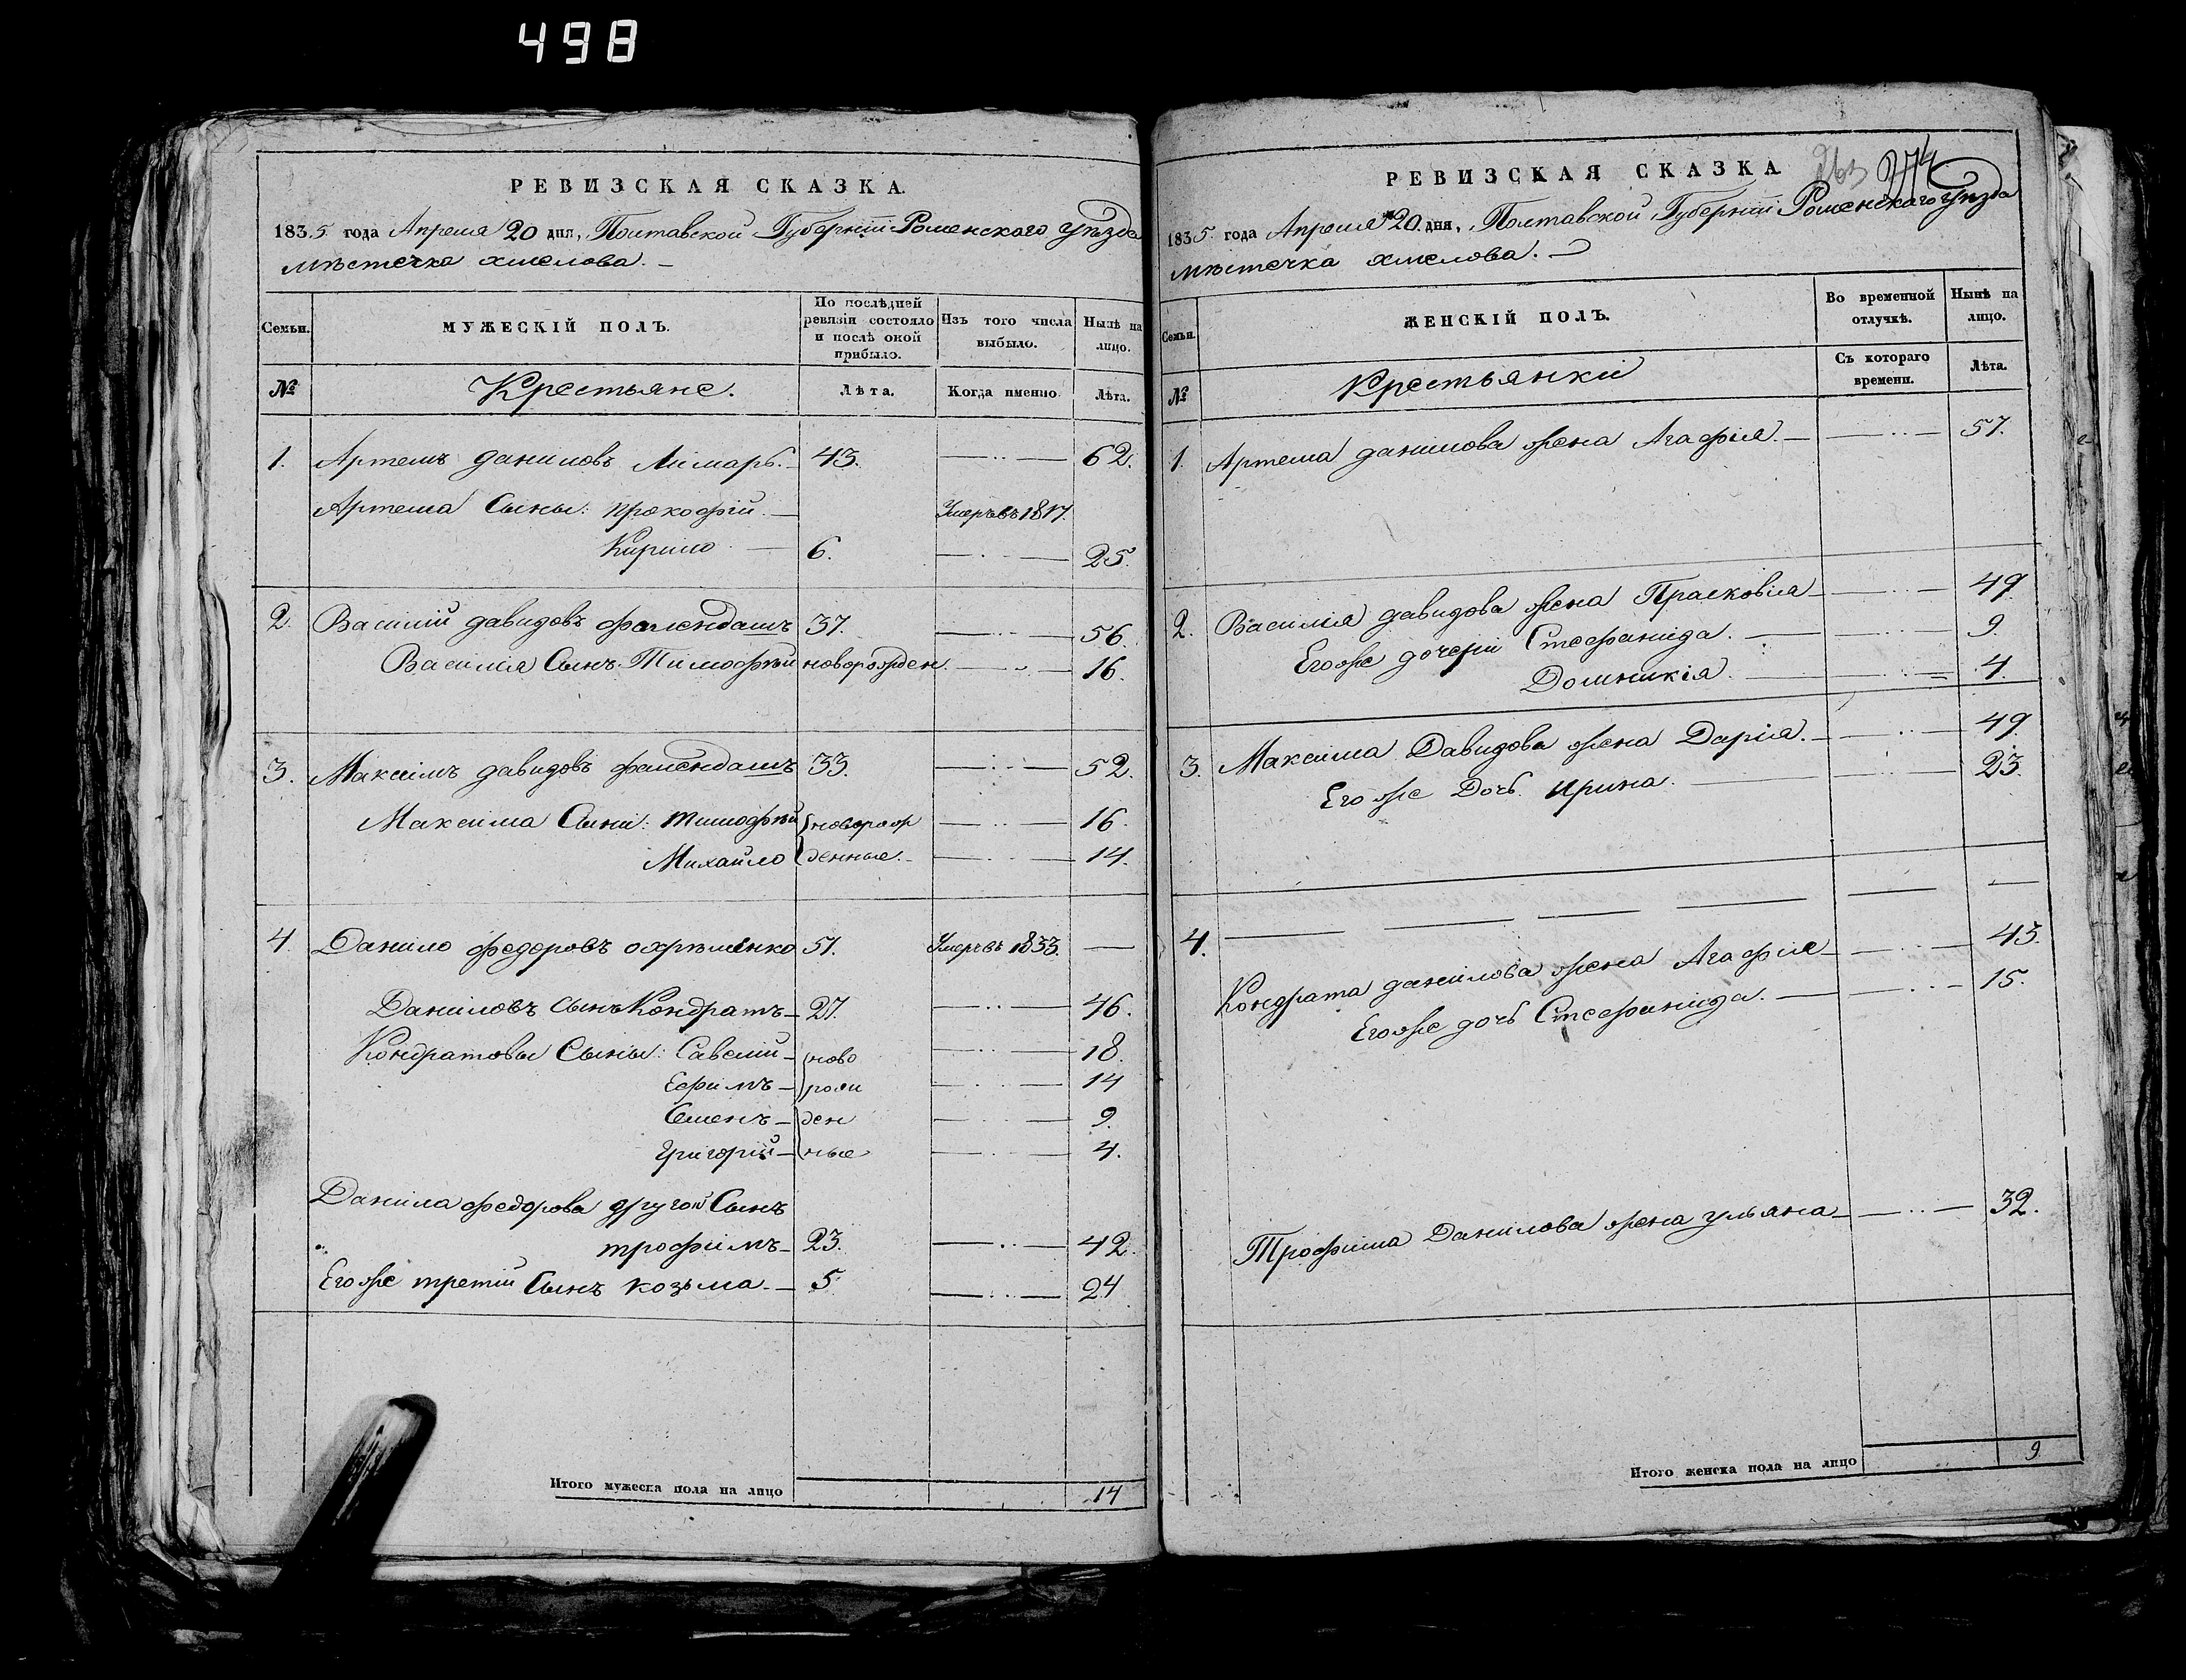 498
РЕВИЗСКАЯ СКАЗКА.
1835 года Апреля 20 дня, Полтавской Губернiи Роменскаго Уѣзда
мѣстечка хмелова. —
Семьи.
МУЖЕСКІЙ ПОЛЪ.
По послѣдней ревизіи состояло и послѣ оной прибыло.
Изъ того числа выбыло.
Нынѣ на лицо.
№
Крестьяне.
Лѣта.
Когда именно
Лѣта.
1. Артемъ даниловъ Лимарь. 43. 62.
Артема Сыны: прокофiй. Умеръ въ 1817.
Кирило 6. 25.
2. Василiй давидовъ фалендашъ 37. 56.
Василiя Сынъ Тимофѣй новорожден. 16.
3. Максимъ давидовъ фалендашъ 33. 52.
Максима Сыни: тимофѣй новорож 16.
Михайло денные. 14.
4. Данило федоровъ охрѣменко 51. Умеръ въ 1833.
Даниловъ Сынъ Кондратъ 27. 46.
Кондратовы Сыны: Савелiй ново 18.
Ефимъ рож 14
Семенъ ден 9.
Григорiй ные 4.
Данила федорова другой Сынъ
трофимъ 23. 42.
Егоже третiй Сынъ козьма. 5. 24
Итого мужеска пола на лицо 14
РЕВИЗСКАЯ СКАЗКА
263 274
1835 года Апреля 20 дня, Полтавской Губернiи Роменскаго Уѣзда
мѣстечка хмелова. —
Семьи.
ЖЕНСКІЙ ПОЛЪ.
Во временной отлучкѣ.
Нынѣ на лицо.
№
Крестьянки
Съ котораго времени.
Лѣта.
1. Артема данилова жена Агафiя. 57.
2. Василiя давидова жена Прасковiя 49
Егоже дочери Стефанида. 9.
Домникiя. 4.
3. Максима Давидова жена Дарiя. 49
Егоже Дочь Ирина. 23.
4.
Кондрата данилова жена Агафiя 43.
Егоже дочь Стефанида. 15.
Трофима Данилова жена ульяна 32.
Итого женска пола на лицо 9